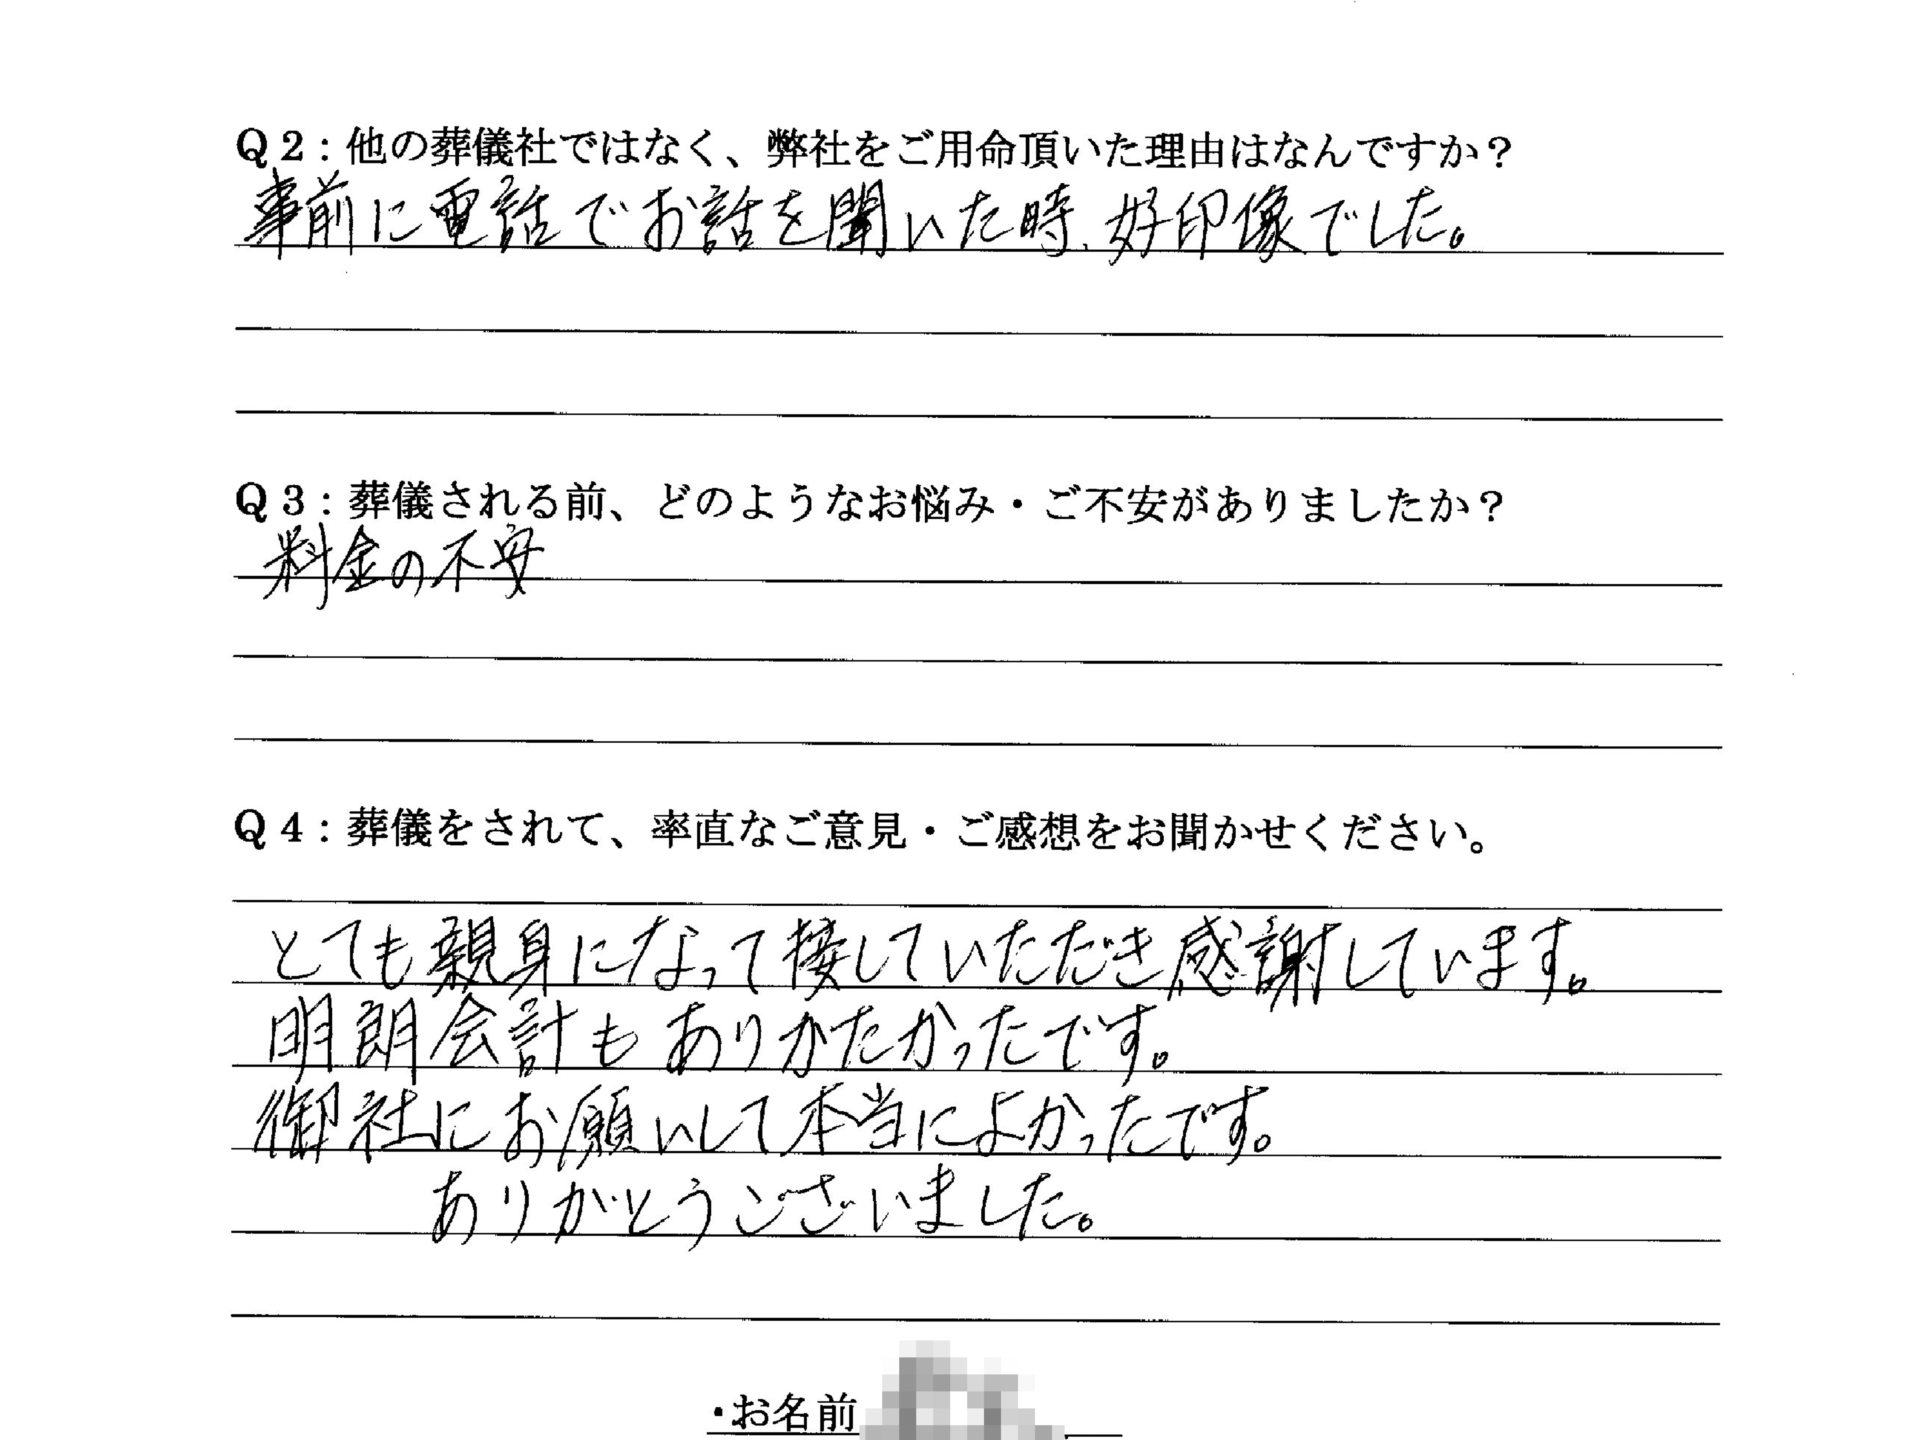 Q2：他の葬儀社ではなく、弊社をご用命頂いた理由はなんですか？
事前に電話でお話を聞いた時、好印像でした。
Q3：葬儀される前、どのようなお悩み・ご不安がありましたか？
料金の不安
Q4：葬儀をされて、率直なご意見・ご感想をお聞かせください。
とても親身になって接していただき感謝しています。
明朗会計もありがたかったです。
御社にお願いして本当によかったです。
ありがとうございました。
・お名前